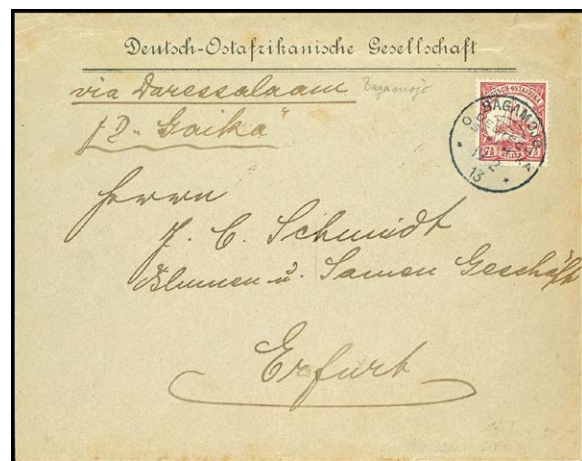 Deutsch-Ostafrikanische Gesellschaft
via Daressalaam
Bagamojo
p D. "Gaika"
DEUTSCH-OSTAFRIKA
BAGAMOJO
13
7½
Herrn
J. C. Schmidt
Blumen u. Samen Geschäft
Erfurt